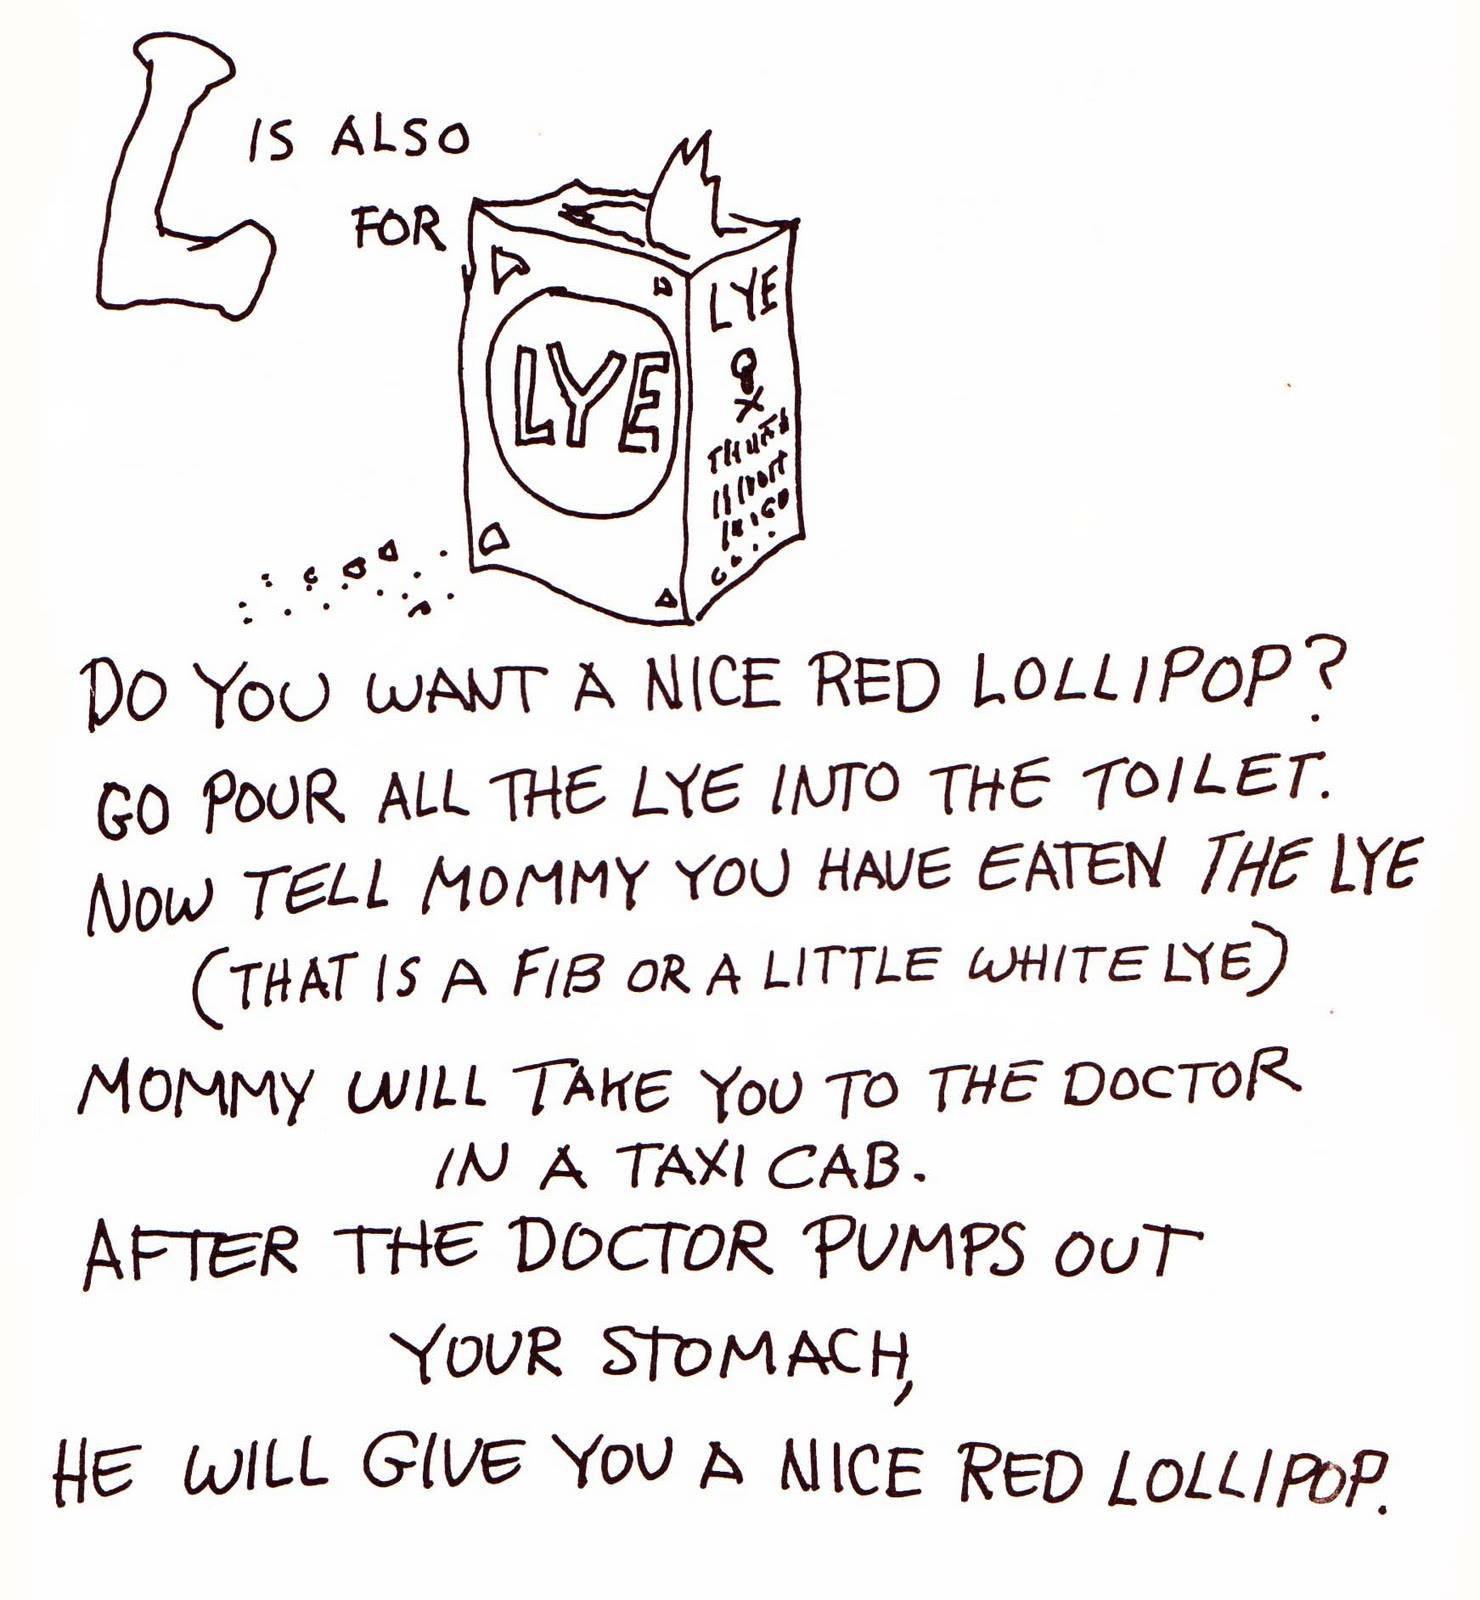 L IS ALSO
FOR
LYE
LYE
DO YOU WANT A NICE RED LOLLIPOP?
GO POUR ALL THE LYE INTO THE TOILET.
NOW TELL MOMMY YOU HAVE EATEN THE LYE
(THAT IS A FIB OR A LITTLE WHITE LYE)
MOMMY WILL TAKE YOU TO THE DOCTOR
IN A TAXI CAB.
AFTER THE DOCTOR PUMPS OUT
YOUR STOMACH,
HE WILL GIVE YOU A NICE RED LOLLIPOP.